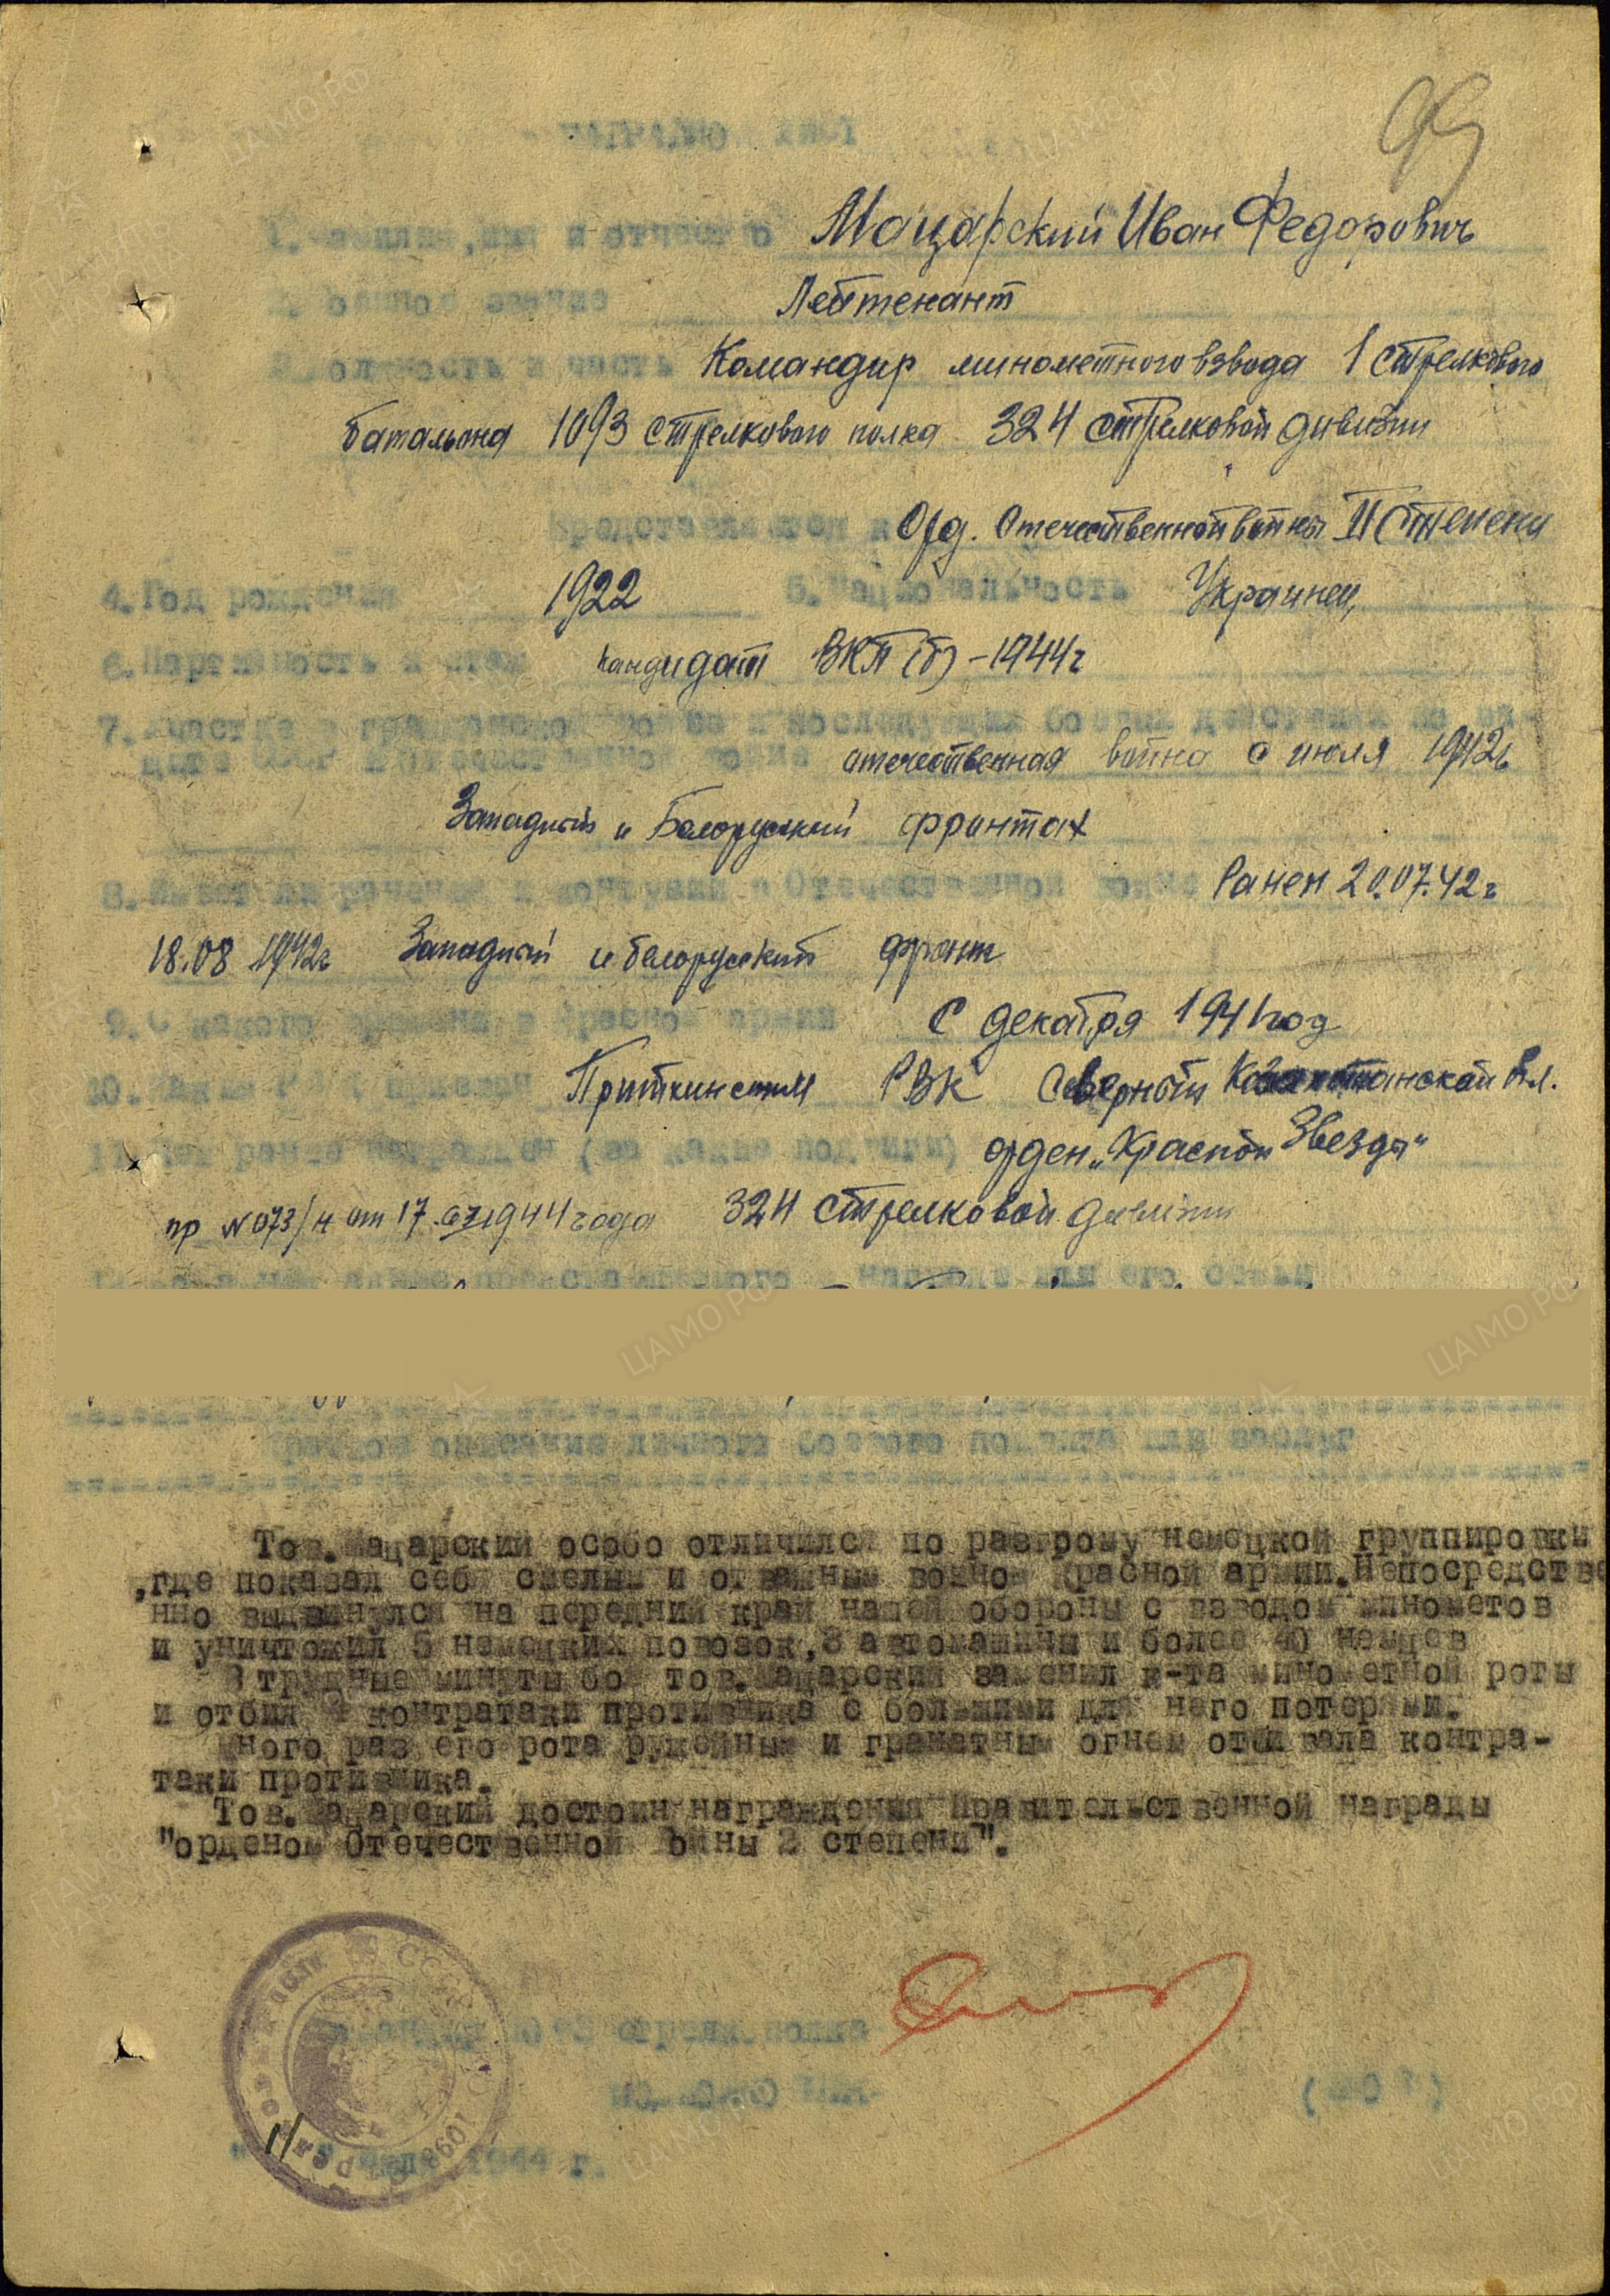 99
НАГРАДНОЙ ЛИСТ
1. Фамилия, имя и отчество Мацарский Иван Федорович
2. Военное звание Лейтенант
3. Должность и часть Командир минометного взвода 1 стрелкового
батальона 1093 стрелкового полка 324 стрелковой дивизии
Представляется к Орд. Отечественной войны II степени
4. Год рождения 1922 5. Национальность Украинец
6. Партийность и стаж кандидат ВКП(б) – 1944 г
7. Участие в гражданской войне и последующих боевых действиях по за-
щите СССР и Отечественной войне отечественная война с июля 1942г
Западный и Белорусский фронтах
8. Имеет ли ранения и контузии в Отечественной войне Ранен 20.07.42г
18.08 1942г Западный и белорусский фронт
9. С какого времени в Красной армии С декабря 1941 год
10. Каким РВК призван РВК Северной Казахстанской обл.
11. Чем ранее награжден (за какие подвиги) орден „Красной Звезды“
пр № 073/н от 17.07.1944 года 324 стрелковой дивизии
представляемого к награде или его семьи
Краткое описание личного боевого подвига или заслуг
Тов. Мацарский особо отличился по разгрому немецкой группировки
,где показал себя смелым и отважным воином Красной армии.Непосредстве
нно выдвинулся на передний край нашей обороны с взводом минометов
и уничтожил 5 немецких повозок,3 автомашины и более 40 немцев
В трудные минуты боя тов.Мацарский заменил к-та минометной роты
и отбил 4 контратаки противника с большими для него потерями.
Много раз его рота ружейным и гранатным огнем отбивала контра-
таки противника.
Тов.Мацарский достоин награждения Правительственной награды
"орденом Отечественной войны 2 степени".
Командир 1093 стрелк.полка
"11" июля 1944 г.